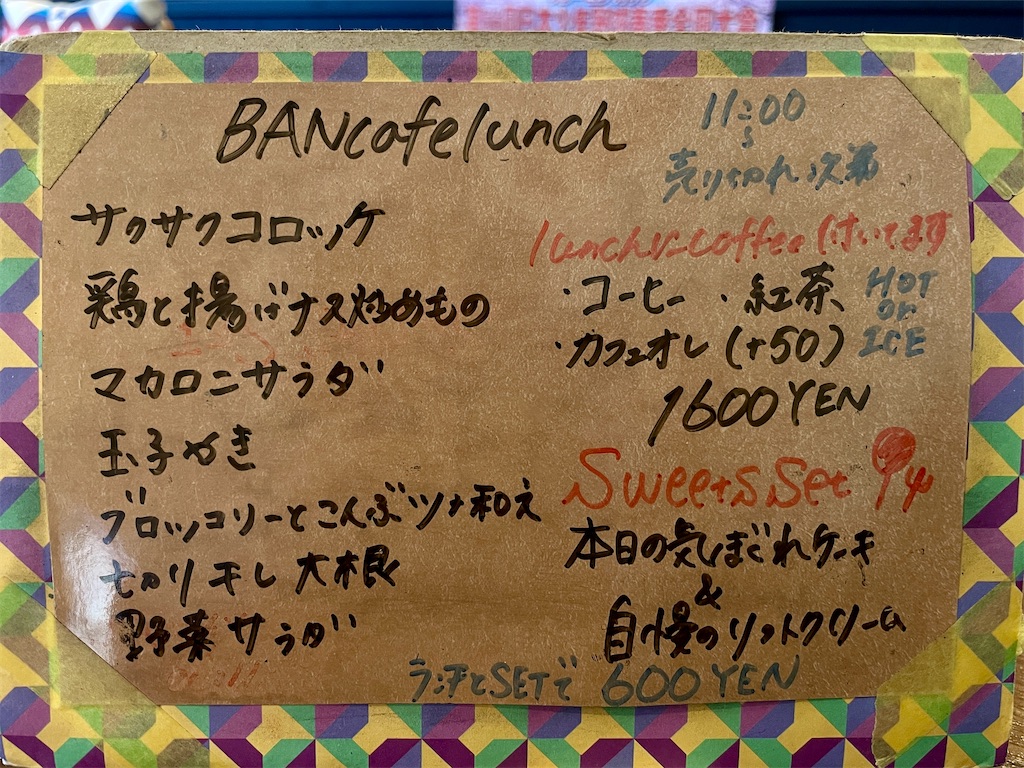 BANcafelunch
11:00
〜
売り切れ次第
サクサクコロッケ
鶏と揚げナス炒めもの
マカロニサラダ
玉子やき
ブロッコリーとこんぶツナ和え
切り干し大根
野菜サラダ
lunchにcoffee付いてます
・コーヒー ・紅茶
・カフェオレ (+50)
HOT
or
ICE
1600YEN
Sweets Set
本日の気まぐれケーキ
&
自慢のソフトクリーム
ランチとSETで 600YEN